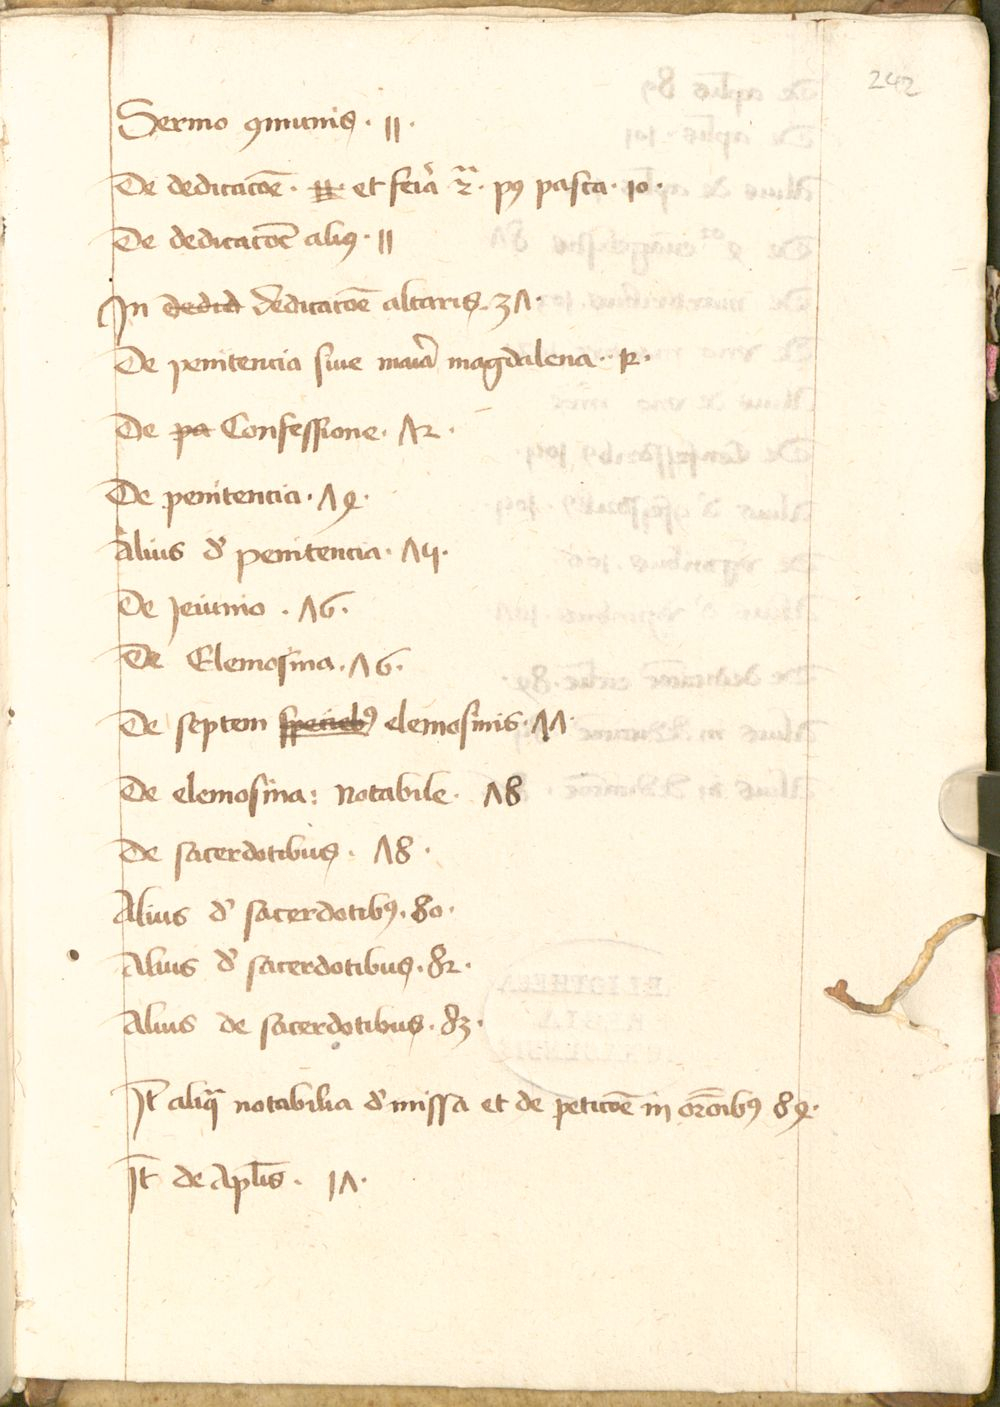 242
Sermo ꝯmunis · 11 ·
De dedicacōe · 11 · et feria 2ª · pꝰ pasca · 10 ·
De dedicatōe aliꝰ · 11
In dedicatōe altaris · 37 ·
De penitencia siue maria magdalena · 12 ·
De pa Confessione · 72 ·
De penitencia · 74 ·
Alius dʼ penitencia · 75 ·
De Jeiunio · 76 ·
De Elemosina · 76 ·
De septem speciebꝰ elemosinis · 77 ·
De elemosina : Notabile · 78
De sacerdotibus · 78 ·
Alius dʼ sacerdotibꝰ · 80 ·
Alius dʼ sacerdotibus · 82 ·
Alius de sacerdotibus · 83 ·
Jt̄ aliqͣ notabilia dʼ missa et de peticōe in orōibꝰ 84 ·
Jt̄ de Apl̄is · 17 ·